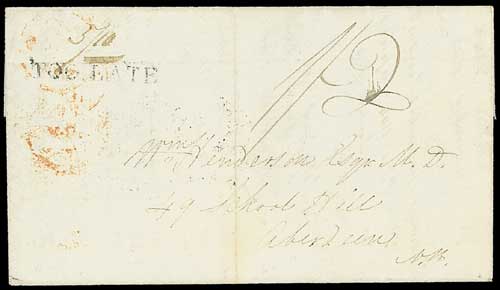 5/10
TOO LATE
1/2
Wm Henderson Esqr M.D.
49 School Hill
Aberdeen
N.B.